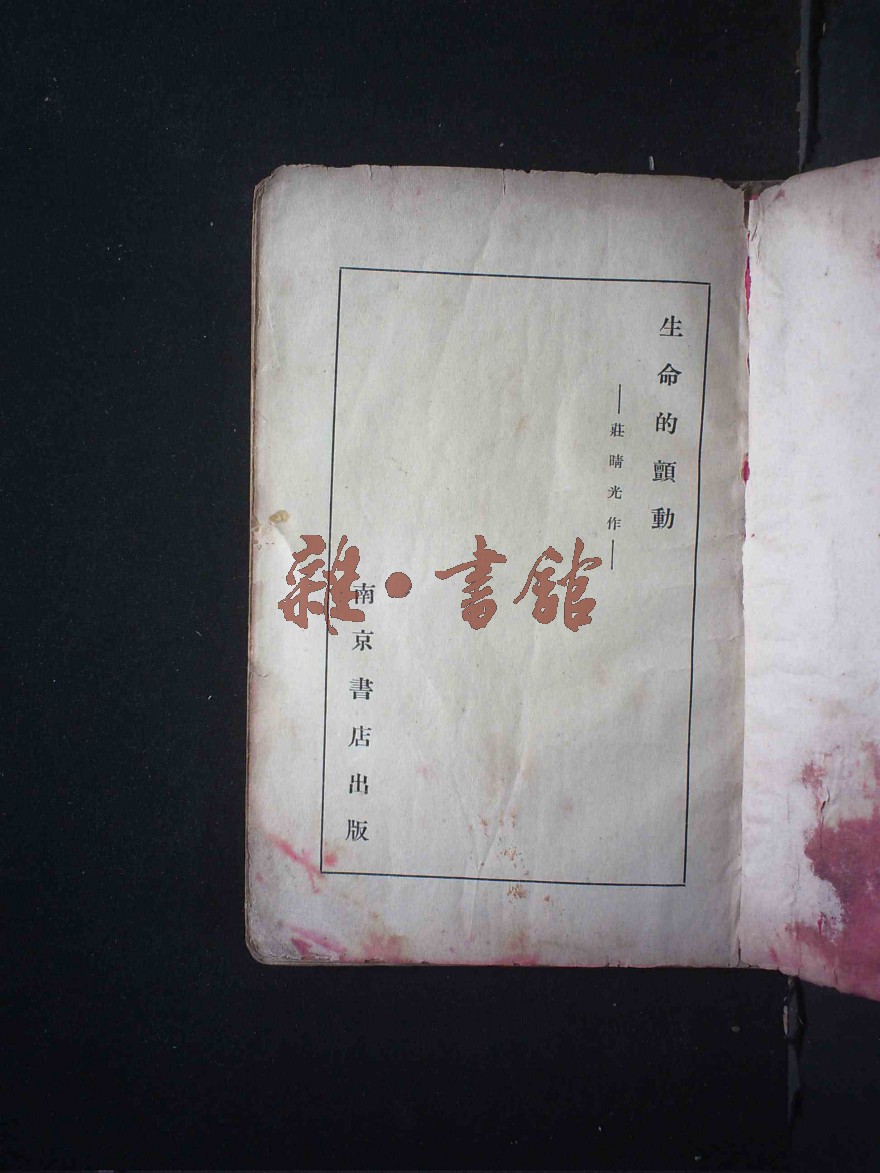 生命的顫動
—莊晴光作—
南京書店出版
雜·書館